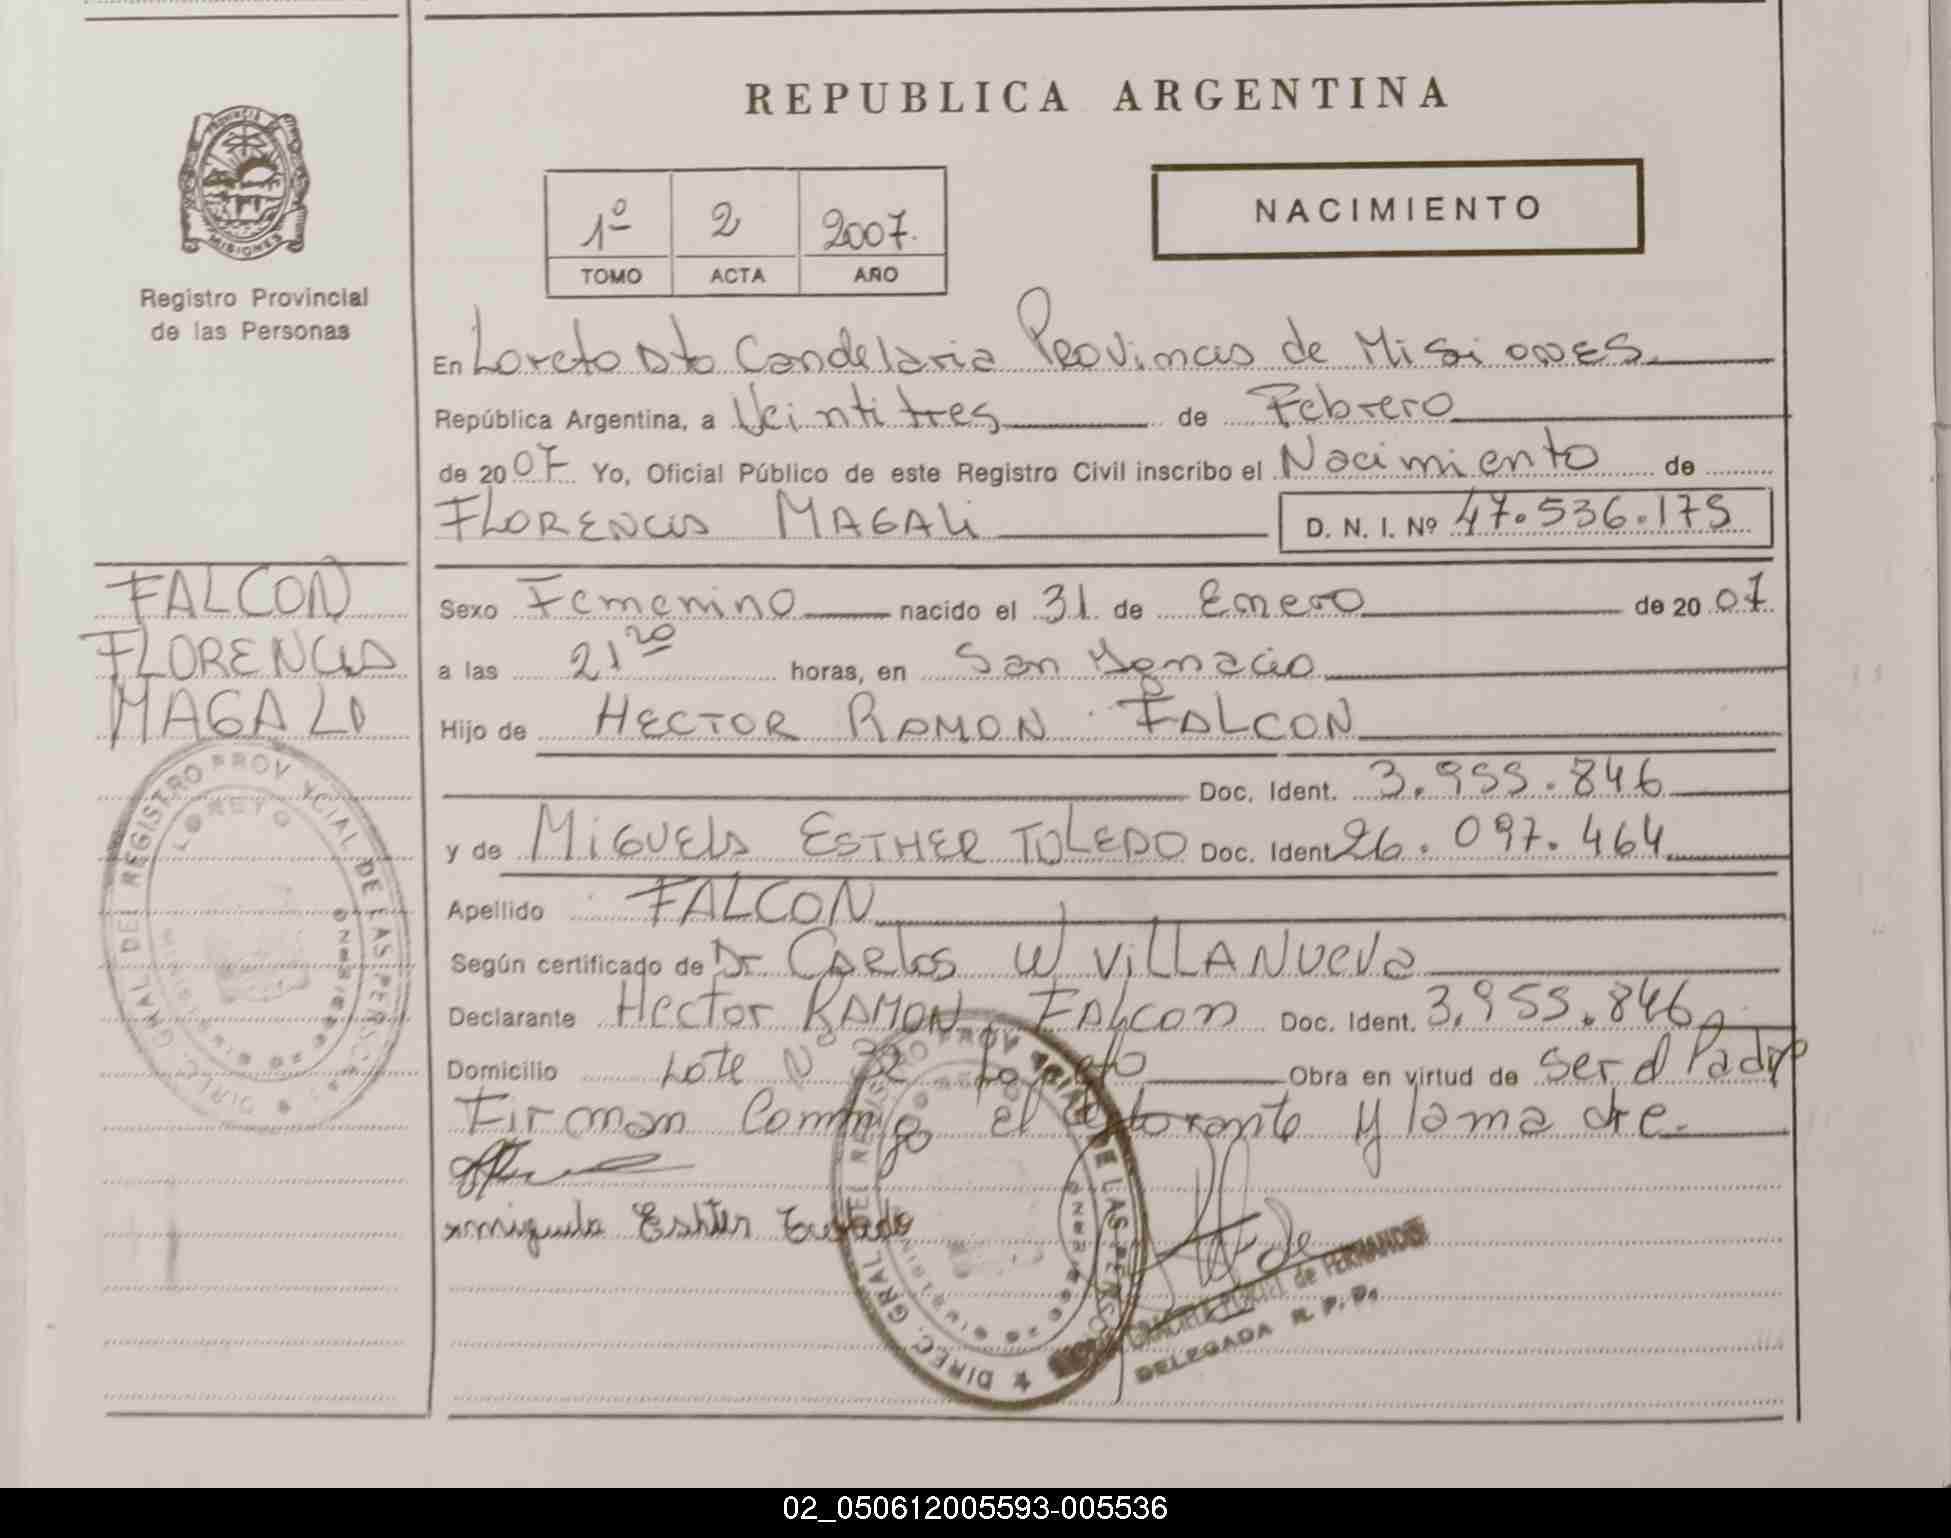 REPUBLICA ARGENTINA
PROVINCIA DE
MISIONES
Registro Provincial
de las Personas
1º 2 2007.
TOMO ACTA AÑO
NACIMIENTO
En Loreto Dto Candelaria Provincia de Misiones
República Argentina, a Veintitres de Febrero
de 2007 Yo, Oficial Público de este Registro Civil inscribo el Nacimiento de
FLORENCIA MAGALI D. N. I. Nº 47.536.175
FALCON
FLORENCIA
MAGALI
Sexo Femenino nacido el 31 de Enero de 2007
a las 21 20 horas, en San Ignacio
Hijo de HECTOR RAMON FALCON
Doc. Ident. 3.955.846
y de MIGUELA ESTHER TOLEDO Doc. Ident 26.097.464
Apellido FALCON
Según certificado de Dr CARLOS W VILLANUEVA
Declarante Hector RAMON FALCON Doc. Ident. 3.955.846
Domicilio Lote Nº 32 Loreto Obra en virtud de ser el Padre
Firman Conmigo el declarante y la madre.
miguela Eshter
DIREC. GRAL DEL REGISTRO PROVINCIAL DE LAS PERSONAS
LORETO
MISIONES
DIREC. GRAL DEL REGISTRO PROVINCIAL DE LAS PERSONAS
MISIONES
GRACIELA de FERNANDO
DELEGADA R. P. P.
02_050612005593-005536